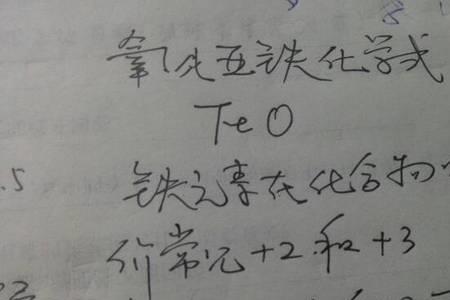 氧化亚铁化学式
FeO
.5 铁元素在化合物
价常见+2和+3